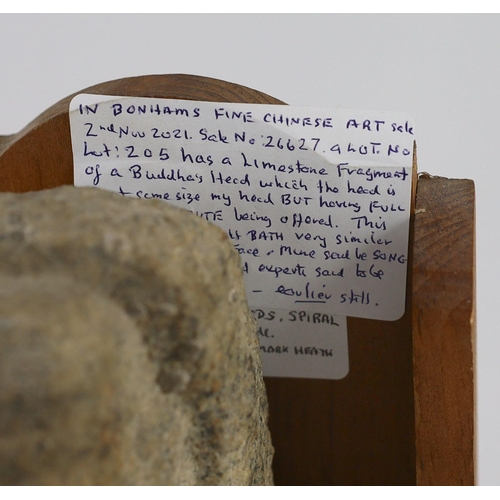 IN BONHAMS FINE CHINESE ART sale
2nd Nov 2021. Sale No: 26627. a LOT. No
Lot: 205 has a Limestone Fragment
of a Buddhas Head which the head is
same size my head BUT having FULL
being offered. This
BATH very similar
Face + Mine said be SONG
experts said to be
- earlier still.
SPIRAL
MARK HEATH